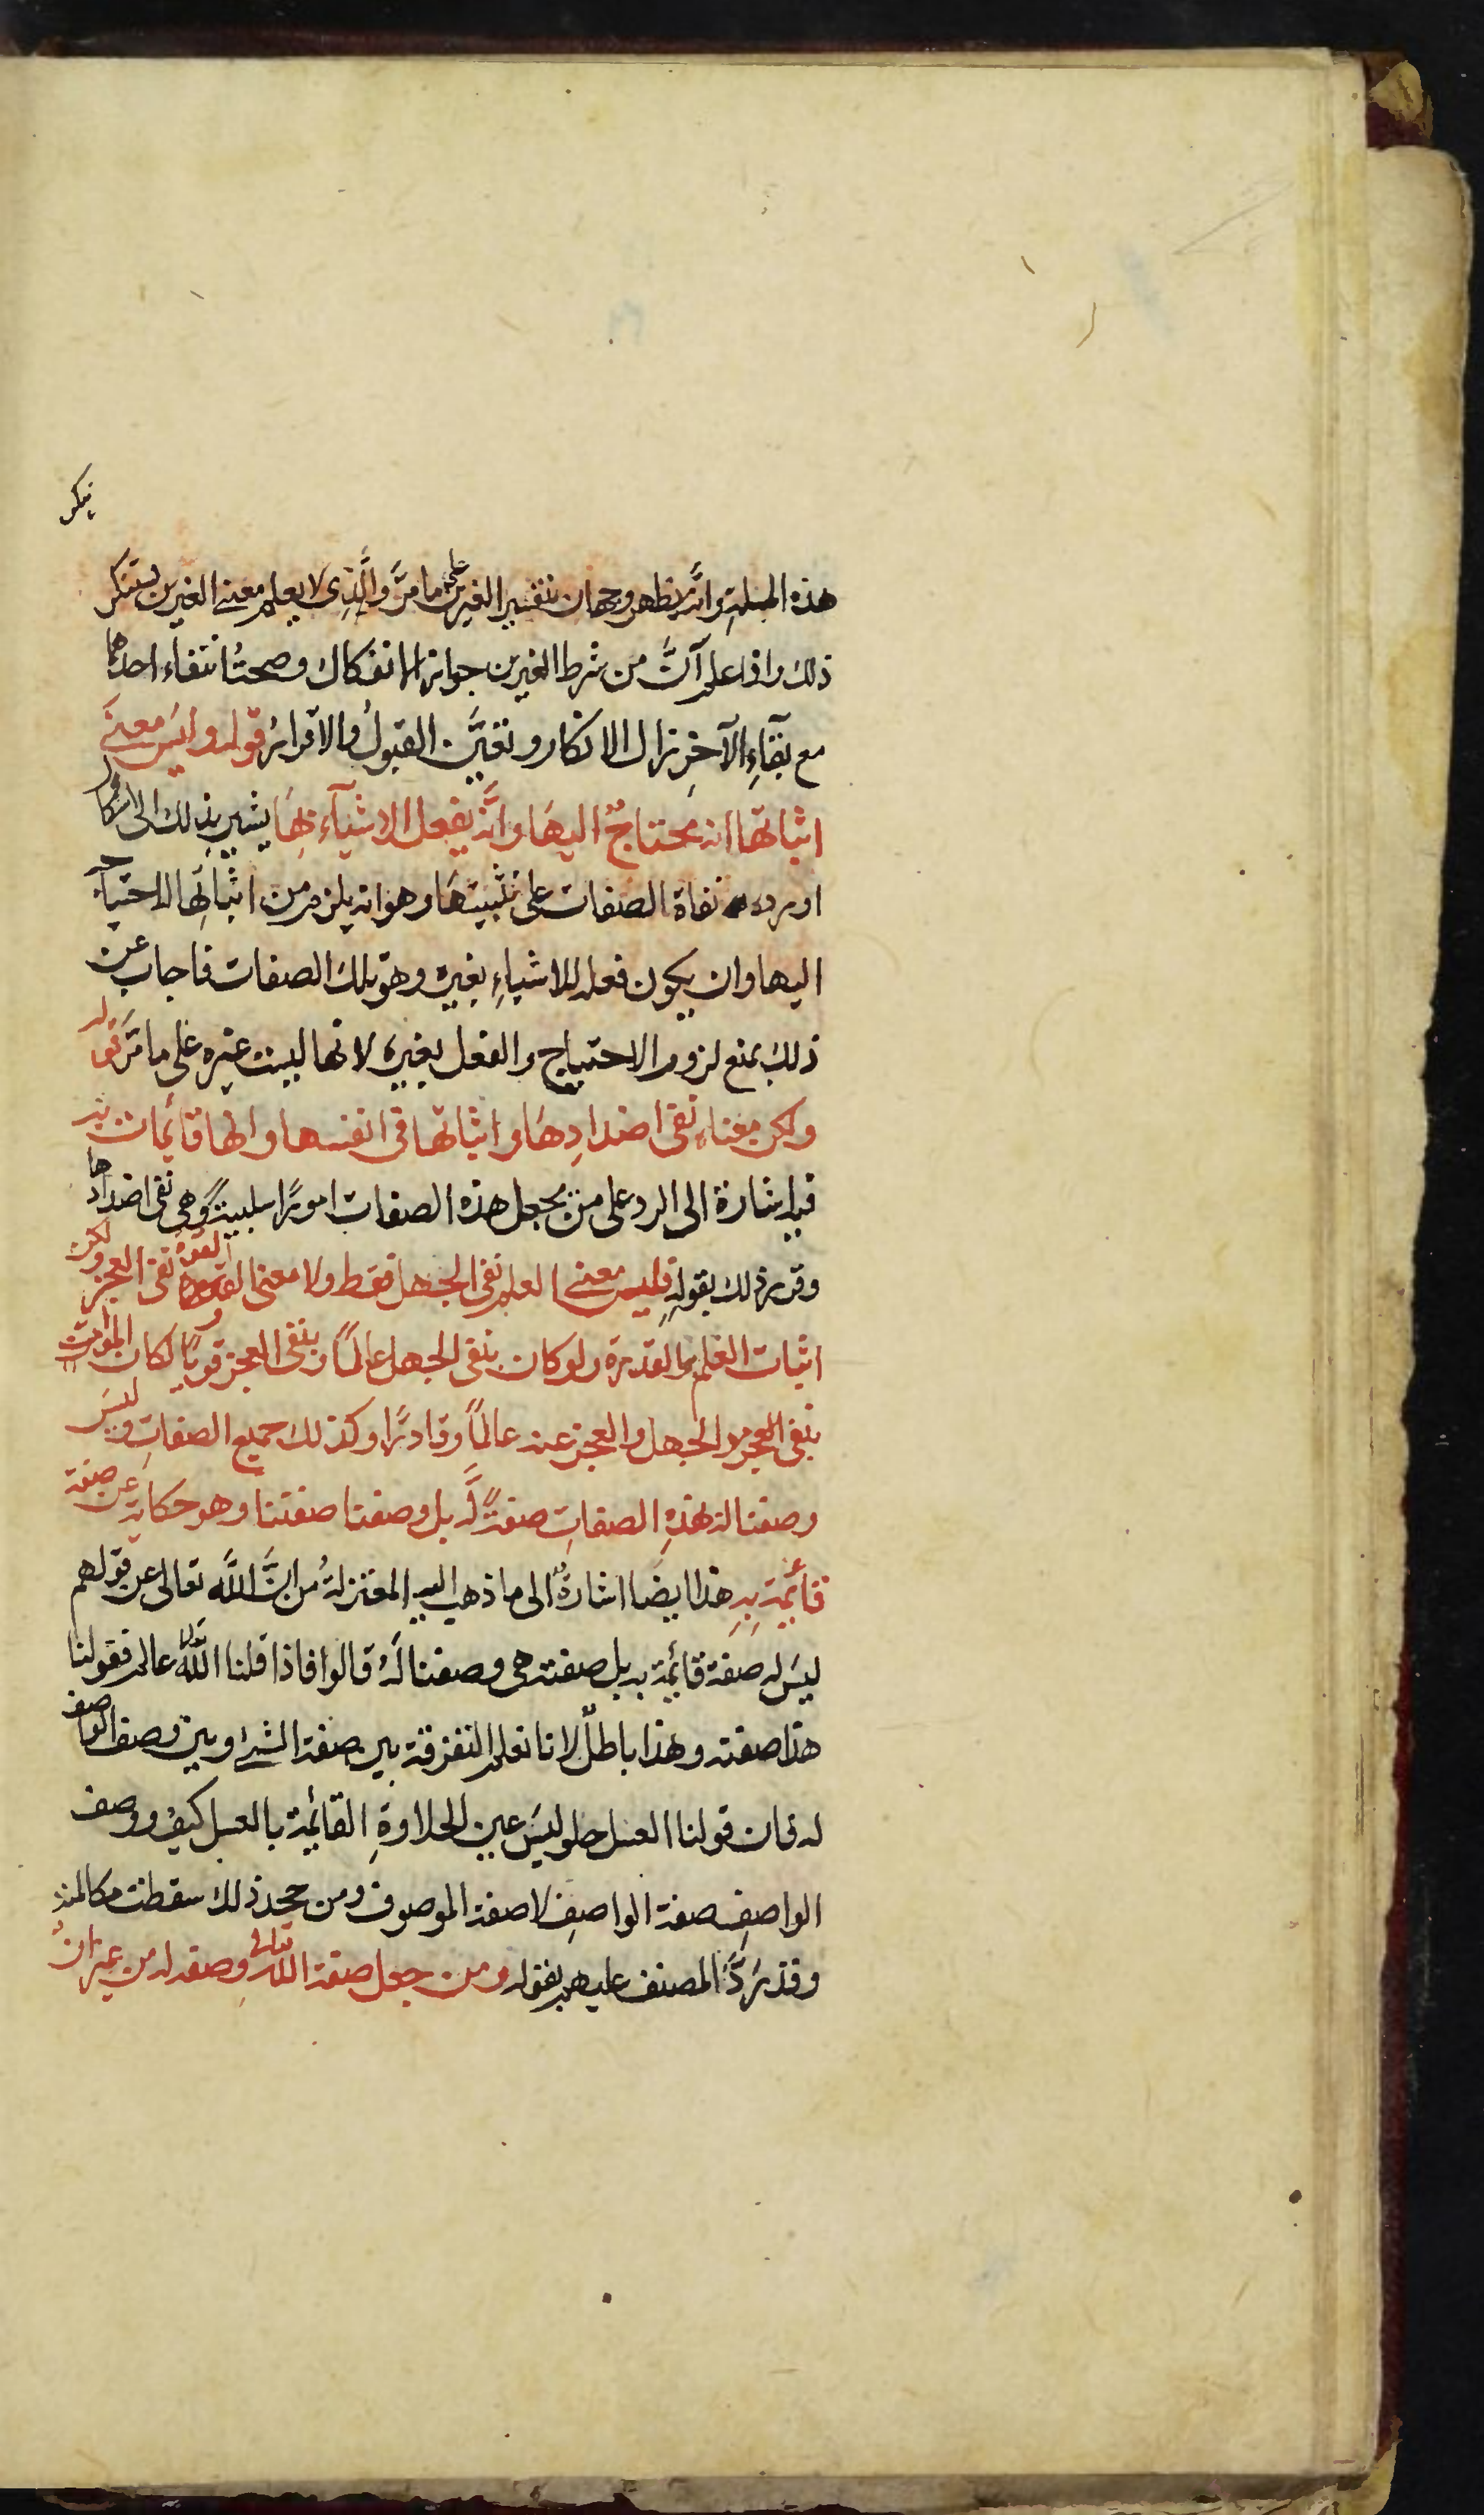 ينكر
هذه المسلة وانما يظهر وجهان بتفسير الغيرين على ما مرَّ والَّذِى لا يعلم معنے الغيرين يستنكر
ذلك واذا علم اَنَّ من شرط الغيرين جواز الانفكاك وصحة انتفاء احدهما
مع بقآءِ الآخرِ زال الانكار وتعيَّن القبولُ والاقرارُ قوله وليس معنے
اثباتها انه محتاجٌ اليهَا وانَّه يفعل الاشيآء بِهَا يشير بذلك الى
اورده نفاة الصفات على مثبتيها وهو انه يلزم من اثباتها الاحتياج
اليها وان يكون فعله للاشياءِ بغيره وهو تلك الصفات فاجاب عن
ذلك بمنع لزوم الاحتياج والفعل بغيره لانها ليست غيره على ما مرَّ قوله
ولكن معناه نفى اضدادِهَا واثباتها فى انفسها وانها قائمات به
فيه اشارة الى الرد على من يجعل هذه الصفات امورًا سلبيةً وهى نفى اضدادها
وقرر ذلك بقولهِ فليس معنے العلم نفى الجهل فقط ولا معنى القوة نفى العجز ولكن
اثبات العلم والقدرة ولو كان بنفى الجهل عالمًا وبنفى العجز قويًا لكان
بنفى الجهل والعجز عنه عالمًا وقادرًا وكذلك جميع الصفاتِ وليس
وصفنا له بهذهِ الصفاتِ صفةً لَّه بل وصفنا صفتنا وهو حكاية عن صفة
قائمة بِهِ هذا ايضًا اشارةٌ الى ما ذهب اليه المعتزلةُ من انَّ اللَّه تعالى عن قولهم
ليسَ له صفة قايمة به بل صفته هى وصفنا لَهُ قالوا فاذا قلنا اللَّه تعالى عالم فقولنا
هذا صفته وهذا باطلٌ لانا نعلم التفرقة بين صفة الشئ وبين وصف الواصف
له فان قولنا العسل حلو ليسَ عين الحلاوةِ القائمة بالعسل كيف ووصف
الواصفِ صفة الواصفِ لا صفة الموصوف ومن جحد ذلك سقطت مكالمته
وقد رَدَّ المصنف عليهم بقوله ومن جعل صفة اللَّهِ تعالى وصفه له من غير انْ